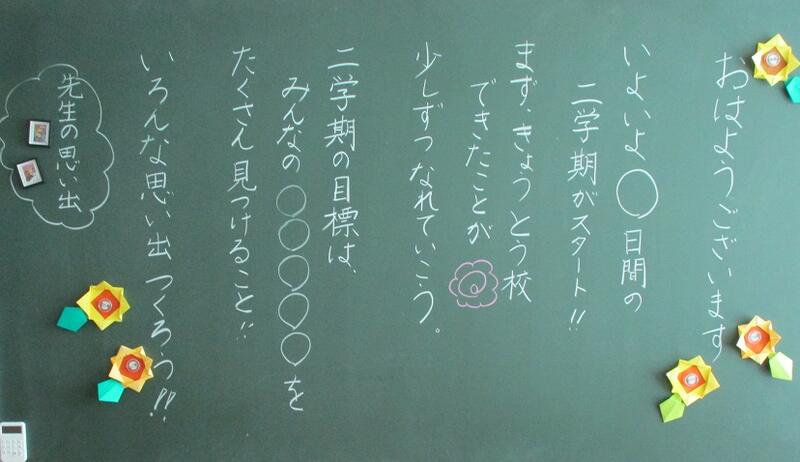 おはようございます
いよいよ◯日間の
二学期がスタート!!
まず、きょうとう校
できたことが
少しずつなれていこう。
二学期の目標は、
みんなの○○○○○を
たくさん見つけること!!
いろんな思い出つくろう!!
先生の思い出